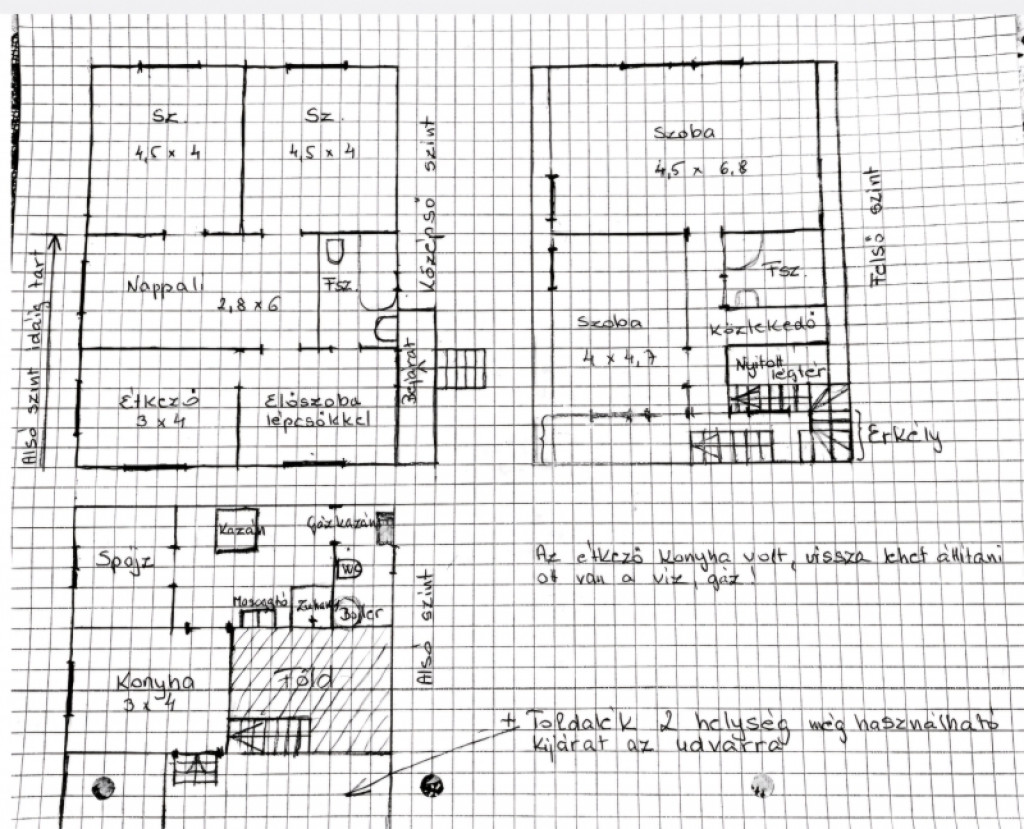 Sz.
4,5 x 4
Sz.
4,5 x 4
Középső szint
Szoba
4,5 x 6,8
Felső szint
Alsó szint idáig tart
Nappali
2,8 x 6
Fsz.
Fsz.
Közlekedő
Szoba
4 x 4,7
Nyitott
légtér
Étkező
3 x 4
Előszoba
lépcsőkkel
Bejárat
Erkély
Spájz
Kazán
Gázkazán
WC
Mosogató
Zuhany
Bojler
Alsó szint
Konyha
3 x 4
Föld
Az étkező konyha volt, vissza lehet állítani
ott van a víz, gáz!
+ Toldalék 2 helység még használható
kijárat az udvarra